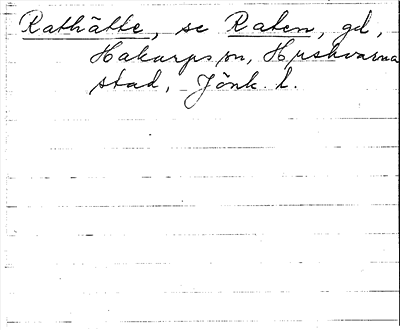 Rathätte, se Raten, gd,
Hakarps sn, Huskvarna
stad, Jönk. l.